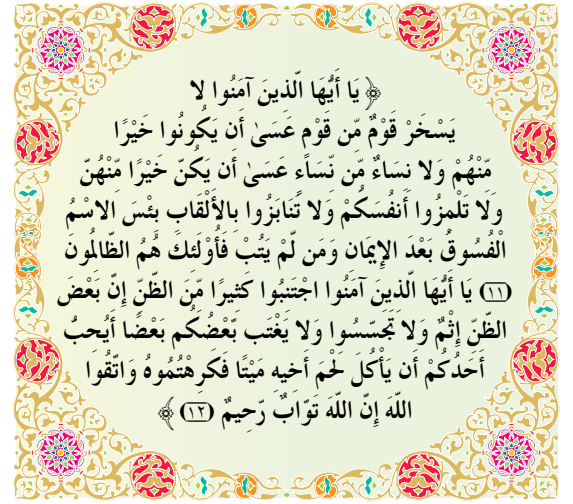 ﴿ يَا أَيُّهَا الَّذِينَ آمَنُوا لا
يَسْخَرْ قَوْمٌ مِّن قَوْمٍ عَسَىٰ أَن يَكُونُوا خَيْرًا
مِّنْهُمْ وَلا نِسَاءٌ مِّن نِّسَاءٍ عَسَىٰ أَن يَكُنَّ خَيْرًا مِّنْهُنَّ
وَلا تَلْمِزُوا أَنفُسَكُمْ وَلا تَنَابَزُوا بِالأَلْقَابِ بِئْسَ الاسْمُ
الْفُسُوقُ بَعْدَ الإِيمَانِ وَمَن لَّمْ يَتُبْ فَأُوْلَئِكَ هُمُ الظَّالِمُونَ
(١١) يَا أَيُّهَا الَّذِينَ آمَنُوا اجْتَنِبُوا كَثِيرًا مِّنَ الظَّنِّ إِنَّ بَعْضَ
الظَّنِّ إِثْمٌ وَلا تَجَسَّسُوا وَلا يَغْتَب بَّعْضُكُم بَعْضًا أَيُحِبُّ
أَحَدُكُمْ أَن يَأْكُلَ لَحْمَ أَخِيهِ مَيْتًا فَكَرِهْتُمُوهُ وَاتَّقُوا
اللَّهَ إِنَّ اللَّهَ تَوَّابٌ رَّحِيمٌ (١٢) ﴾